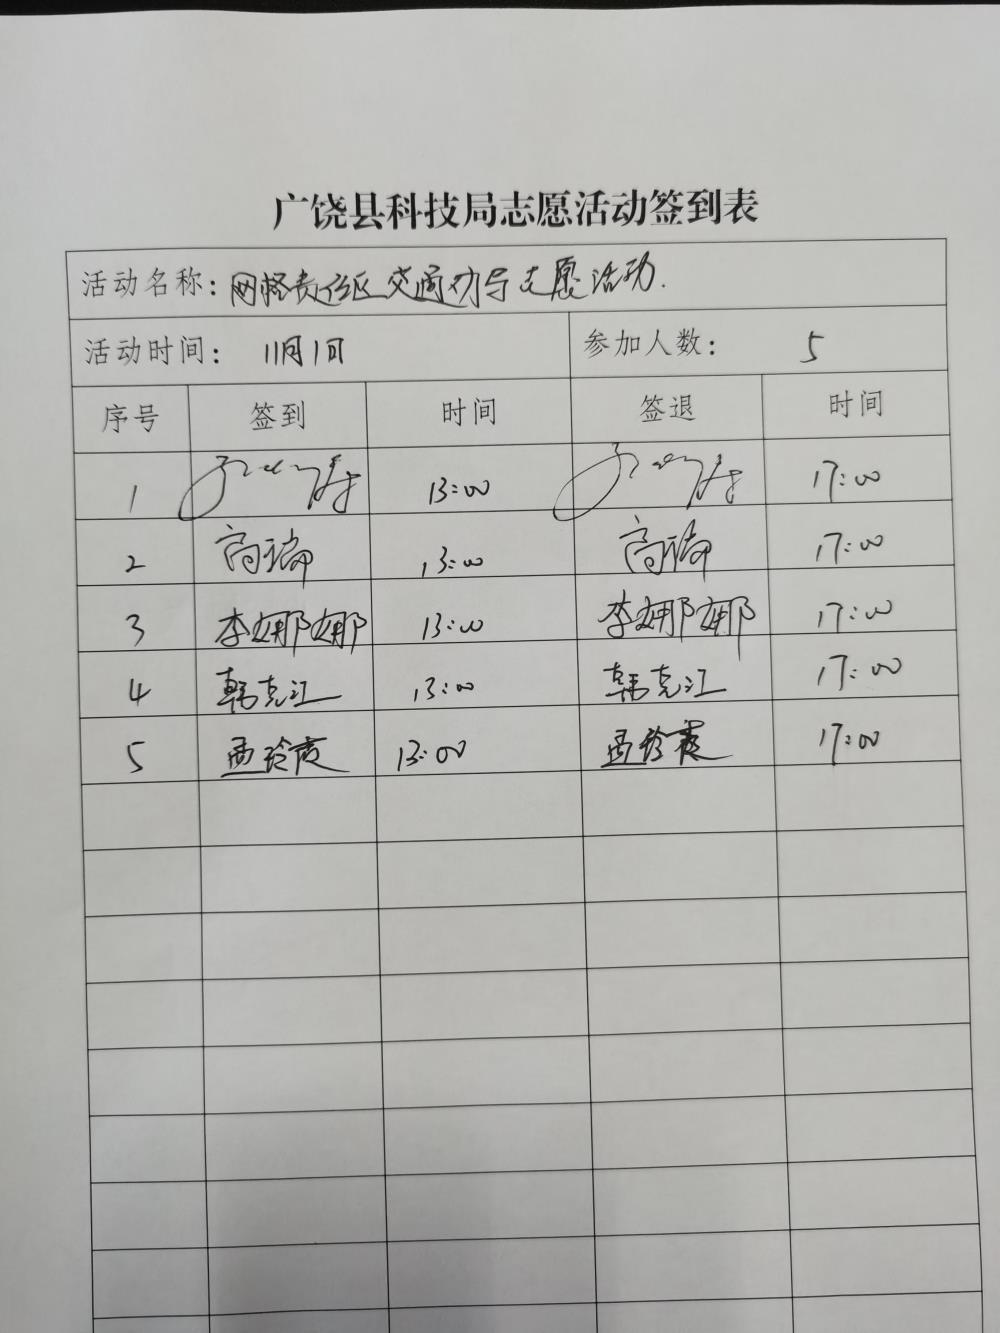 广饶县科技局志愿活动签到表
活动名称：网格责任区交通劝导志愿活动.
活动时间： 11月1日 参加人数： 5
序号 签到 时间 签退 时间
1 13:00 17:00
2 高瑞 13:00 高瑞 17:00
3 李娜娜 13:00 李娜娜 17:00
4 韩克江 13:00 韩克江 17:00
5 孟玲霞 13:00 孟玲霞 17:00